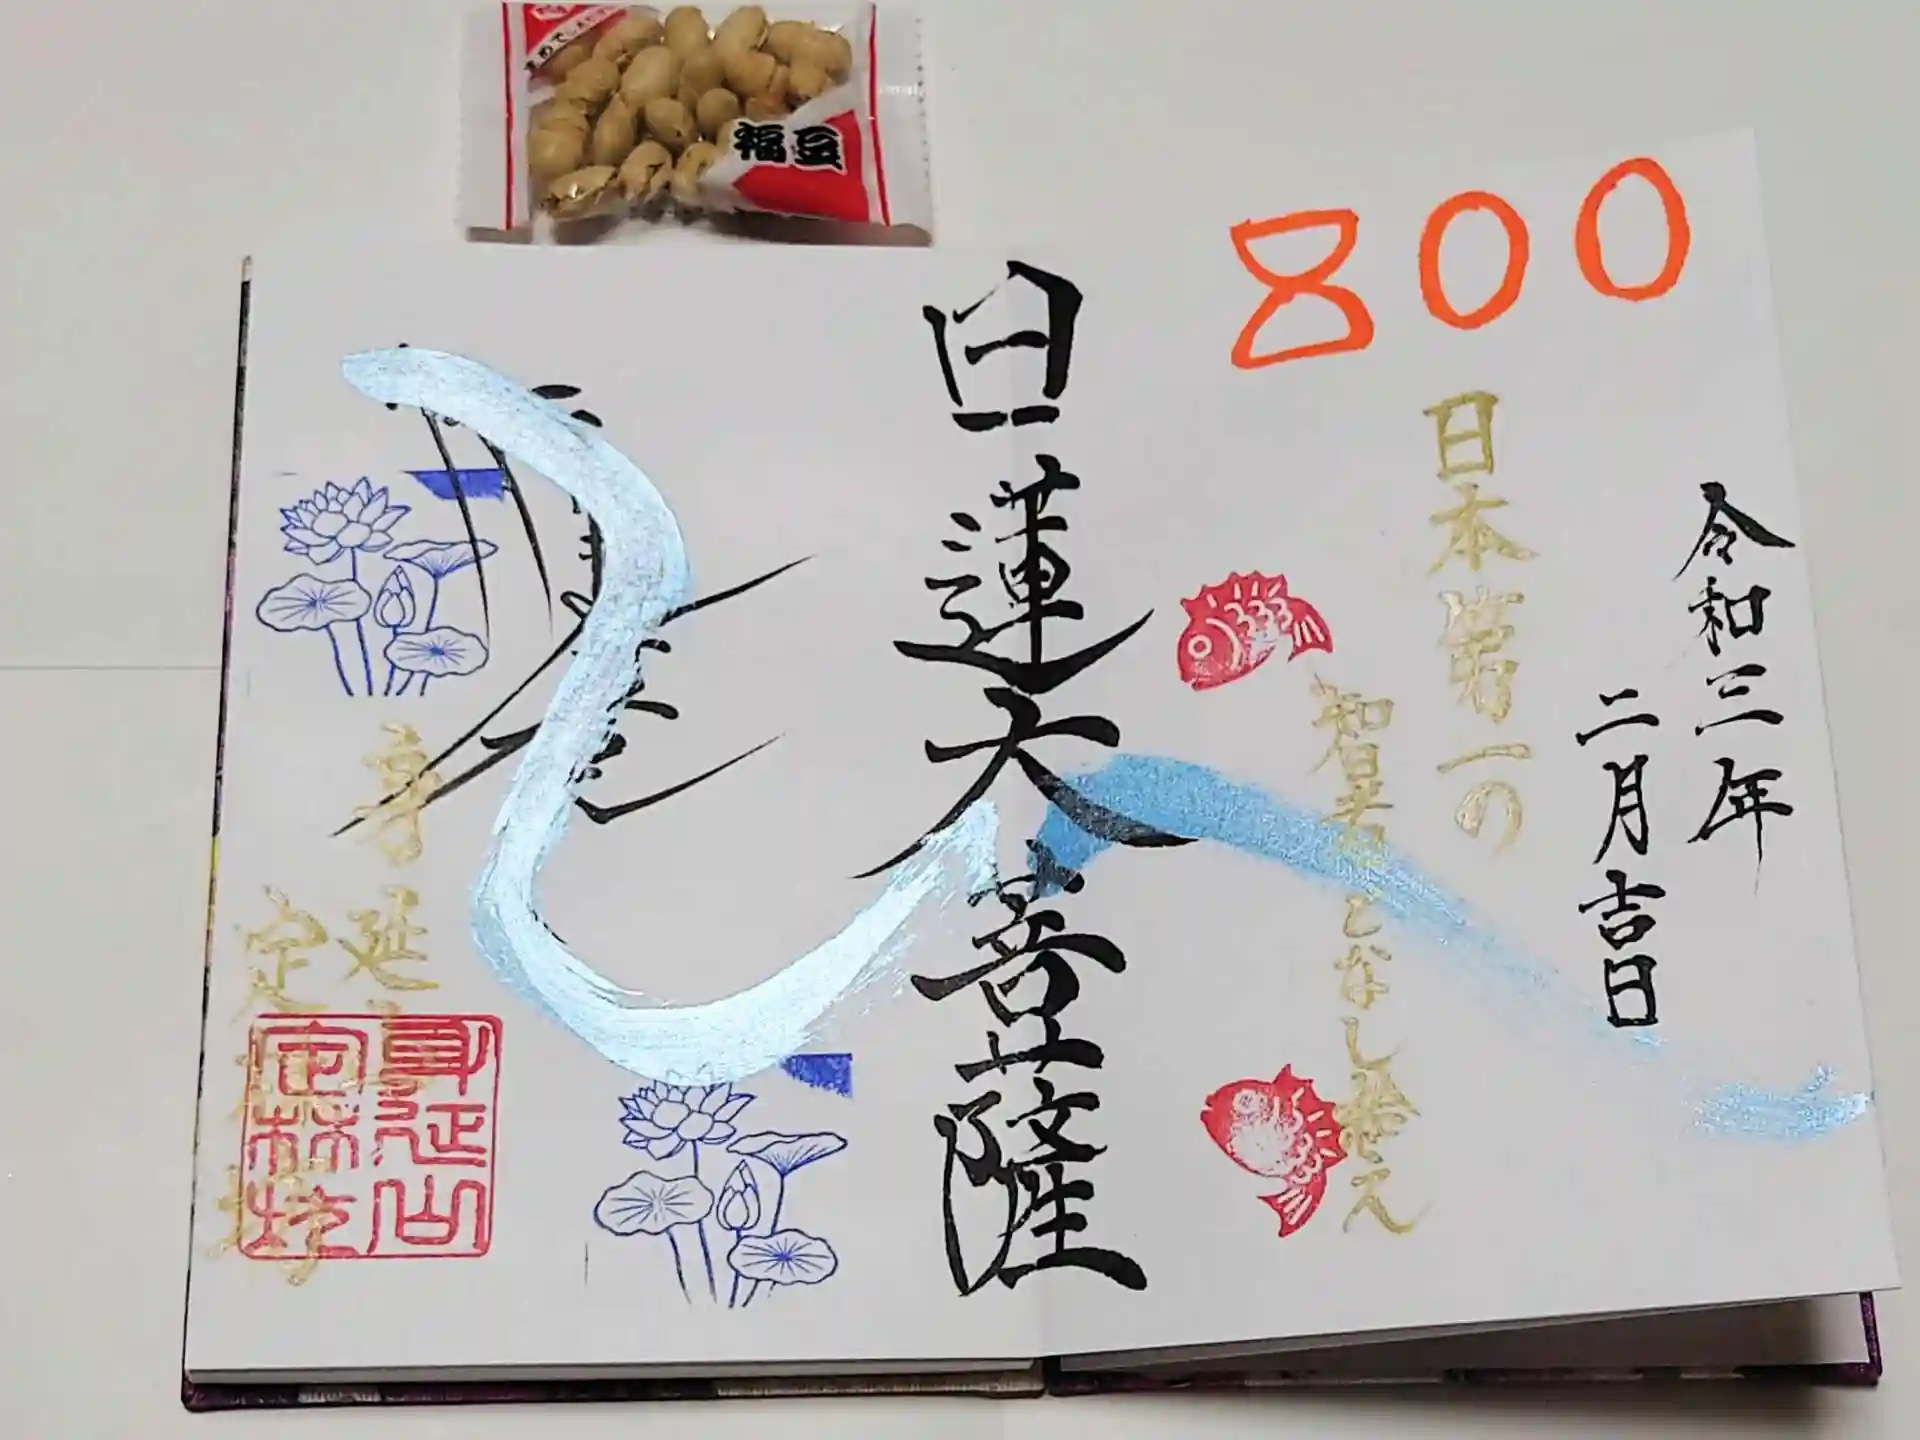 福豆
800
令和三年
二月吉日
日本第一の
智者となし給え
日蓮大菩薩
身延山
定林坊
身延山
定林坊